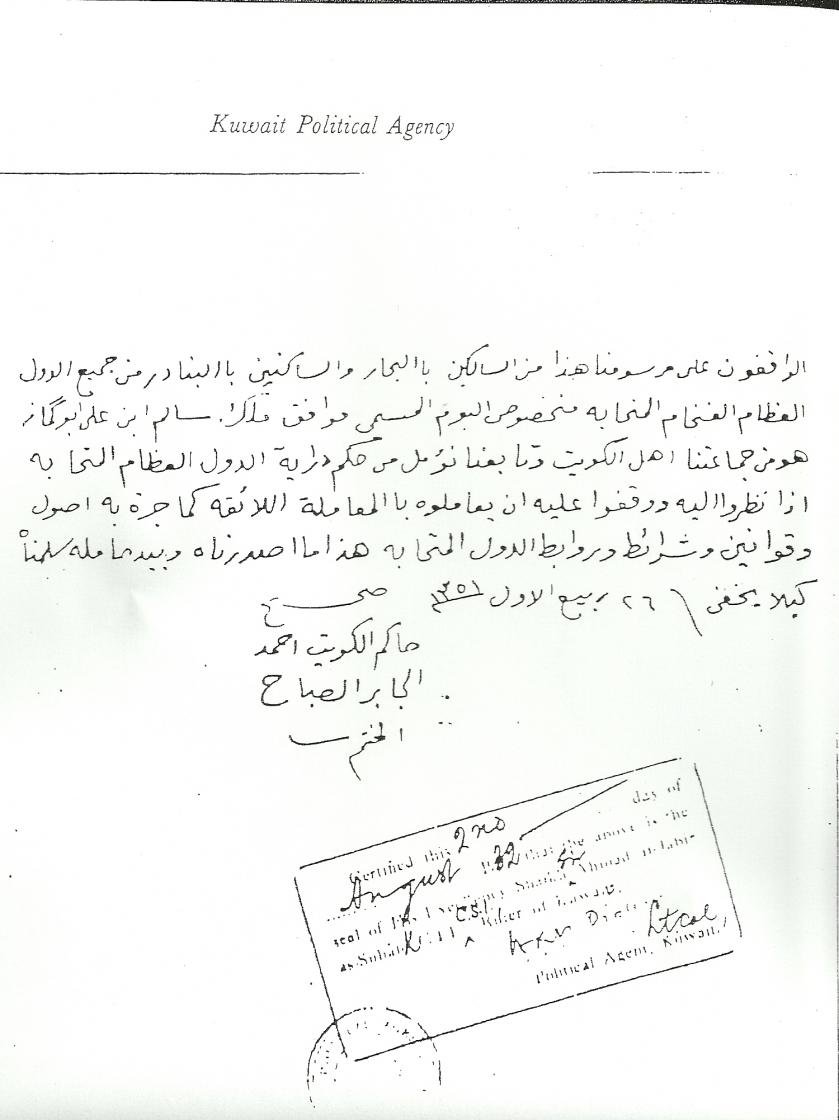 Kuwait Political Agency
الواقفون على مرسومنا هذا من السالكين باالبحار والساكنين باالبنادر من جميع الدول
العظام الفخام المتحابه منخصوص البوم المسمى موافق ملك سالم ابن على ابو گماز
هو من جماعتنا اهل الكويت وتابعنا نؤمل من حكم دراية الدول العظام المتحابه
اذا نظروا اليه ووقفوا عليه ان يعاملوه باالمعاملة اللائقه كما جرة به اصول
وقوانين وشرائط وروابط الدول المتحابه هذا ما اصدرناه وبيد حامله سلمناه
كيلا يخفى ٢٦ ربيع الاول ١٣٥١ صح
حاكم الكويت احمد
الجابر الصباح
الختم
Certified this 2nd day of
August 1932 that the above is the
seal of His Excellency Shaikh Sir Ahmad al-Jabir
as-Subah K.C.I.E. C.S.I. Ruler of Kuwait.
Lt Col
Political Agent, Kuwait.